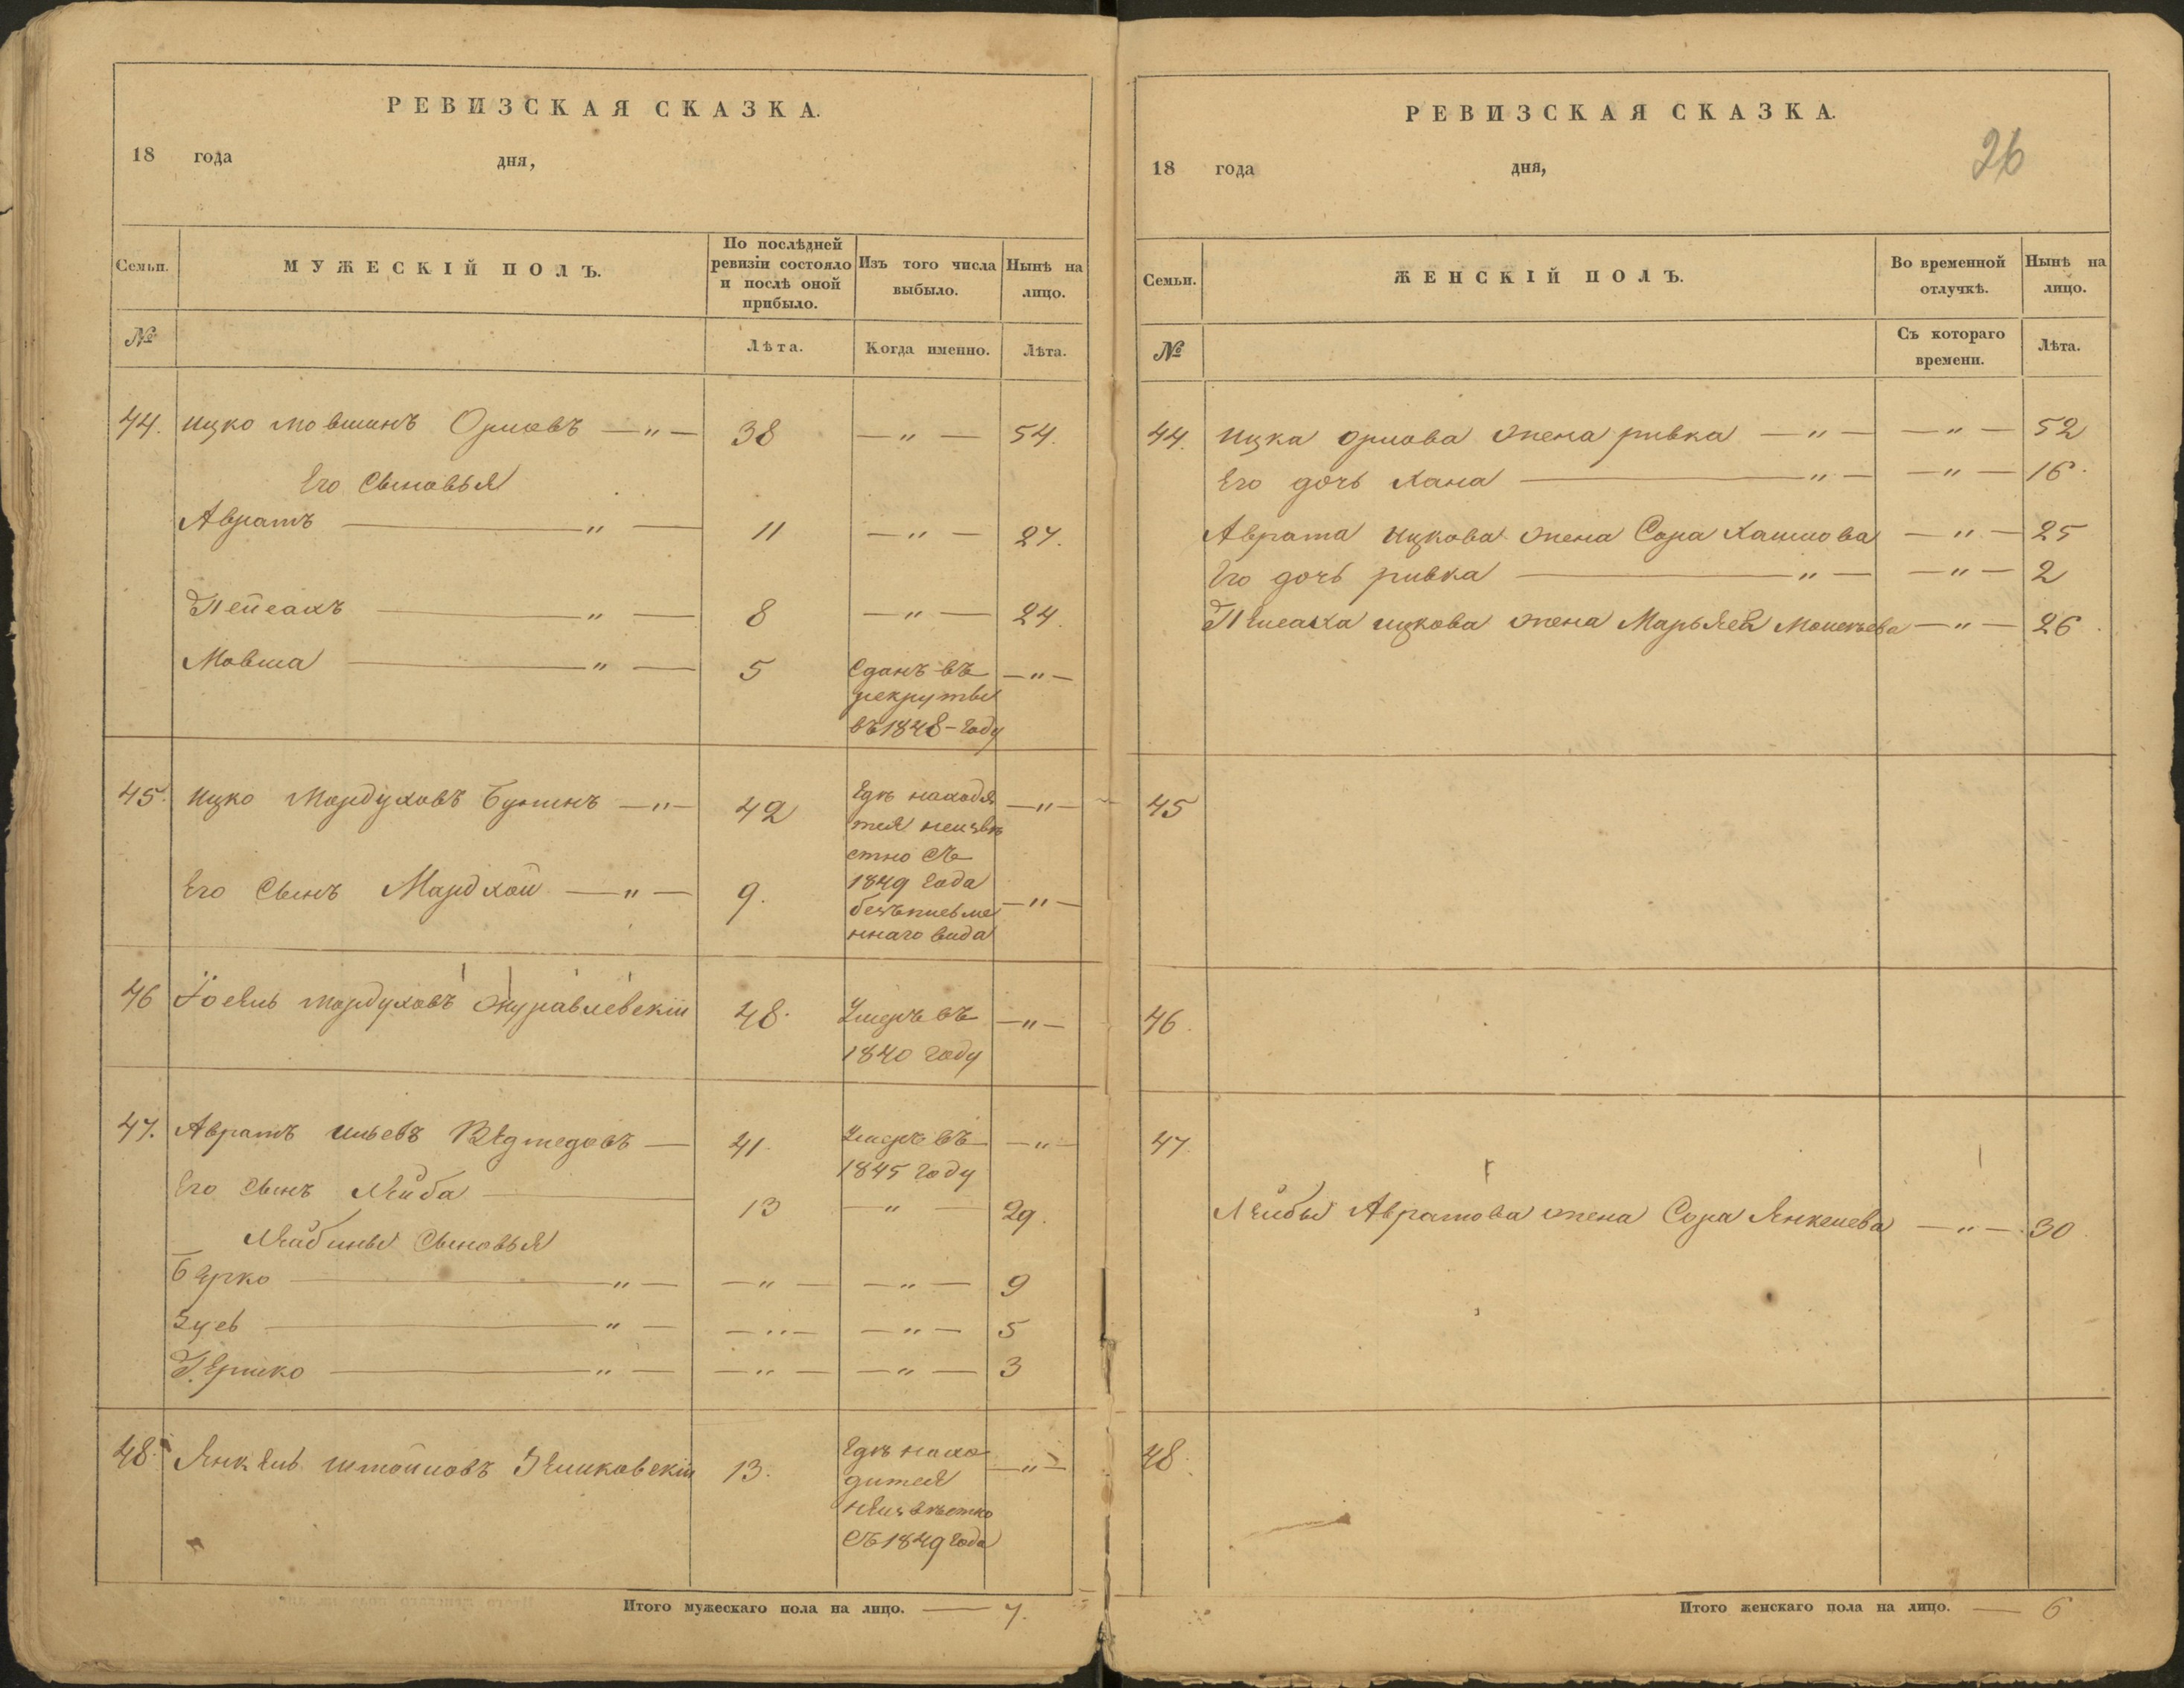 РЕВИЗСКАЯ СКАЗКА.
18 года дня,
Семьи. МУЖЕСКІЙ ПОЛЪ. По послѣдней ревизіи состояло и послѣ оной прибыло. Изъ того числа выбыло. Нынѣ на лицо.
№ Лѣта. Когда именно. Лѣта.
44. Ицко Мовшинъ Орловъ — " — 38 — " — 54.
Его Сыновья
Аврамъ — " — 11 — " — 27.
Пейсахъ — " — 8 — " — 24.
Мовша — " — 5 Сданъ въ — " —
рекруты
въ 1848 - году
45. Ицко Мордуховъ Бунинъ — " — 42 Гдѣ находя — " —
тся неизвѣ
стно съ
Его Сынъ Мардхой — " — 9. 1849 года — " —
безъ письме
ннаго вида
46 Іоель Мордуховъ Журавлевскій 48. Умеръ въ — " —
1840 году
47. Аврамъ Ильевъ Вѣдмедовъ — 41. Умеръ въ — " —
1845 году
Его сынъ Лейба — 13 — " — 29.
Лейбины Сыновья
Берко — " — — " — — " — 9
Зусь — " — — " — — " — 5
Гершко — " — — " — — " — 3
48. Янкель 13. Гдѣ нахо — " —
дится
неизвѣстно
съ 1849 года
Итого мужескаго пола на лицо. — 7.
РЕВИЗСКАЯ СКАЗКА.
26
18 года дня,
Семьи. ЖЕНСКІЙ ПОЛЪ. Во временной отлучкѣ. Нынѣ на лицо.
№ Съ котораго времени. Лѣта.
44. Ицка Орлова жена Ривка — " — — " — 52
Его дочь Хана — " — — " — 16.
Аврама Ицкова жена Сора Хаимова — " — 25
Его дочь Ривка — " — — " — 2
Пейсаха Ицкова жена — " — 26.
45
46.
47
Лейбы Аврамова жена Сора Янкелева — " — 30
48.
Итого женскаго пола на лицо. — 6